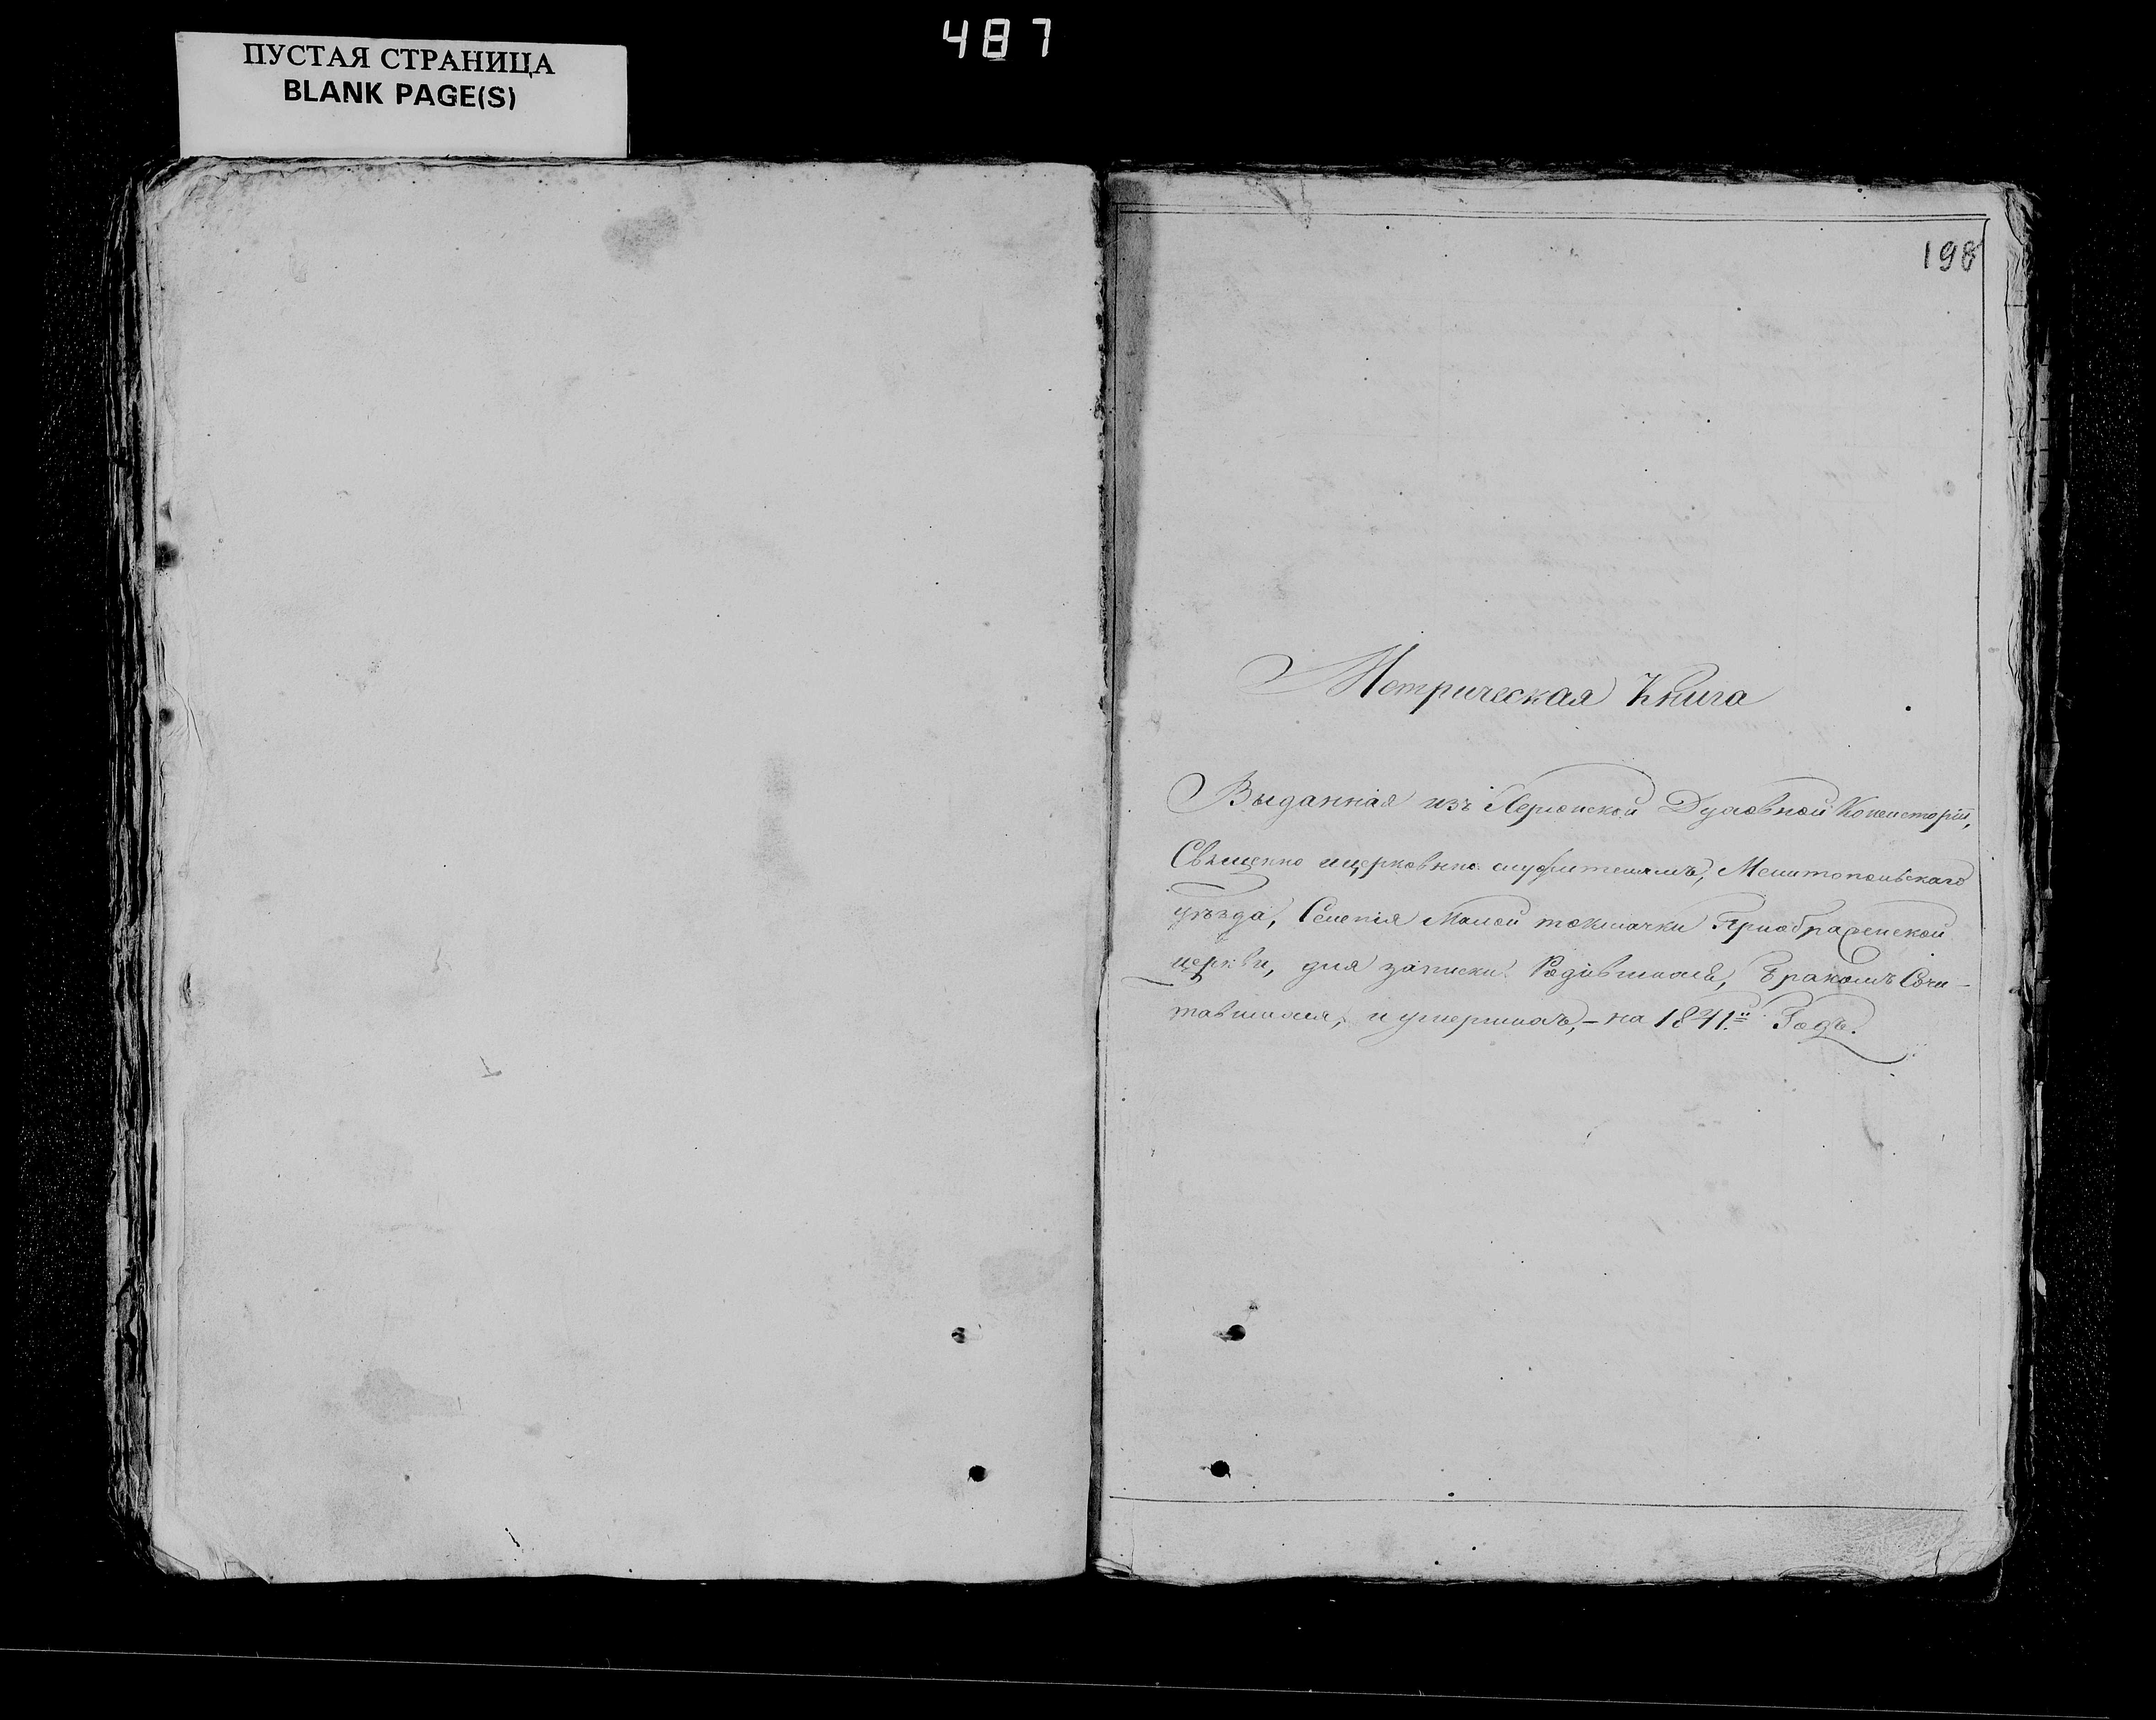 487
ПУСТАЯ СТРАНИЦА
BLANK PAGE(S)
198
Метрическая Книга
Выданная изъ Херсонской Духовной Консисторіи,
Священно ицерковно служителямъ, Мелитопольскаго
уѣзда, Селенія Малой токмачки Приображенской
церкви, для записки Родившихся, бракомъ Сочи-
тавшихся, и умершихъ, - на 1841.й Годъ.